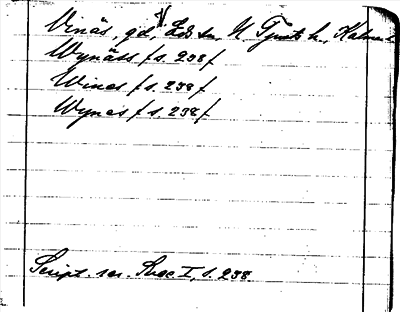 Vinäs, gd, Eds sn, N Tjusts h., Kalmar
Wynäss / s. 238 /
Winas / s. 238 /
Wynas / s. 238 /
Script. rer. Svec I, s. 238